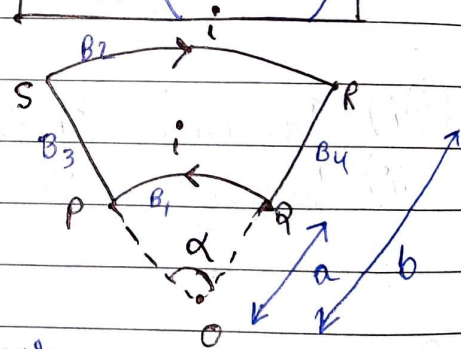 B2
i
S
R
B3
i
B4
P
B1
Q
α
a
b
O